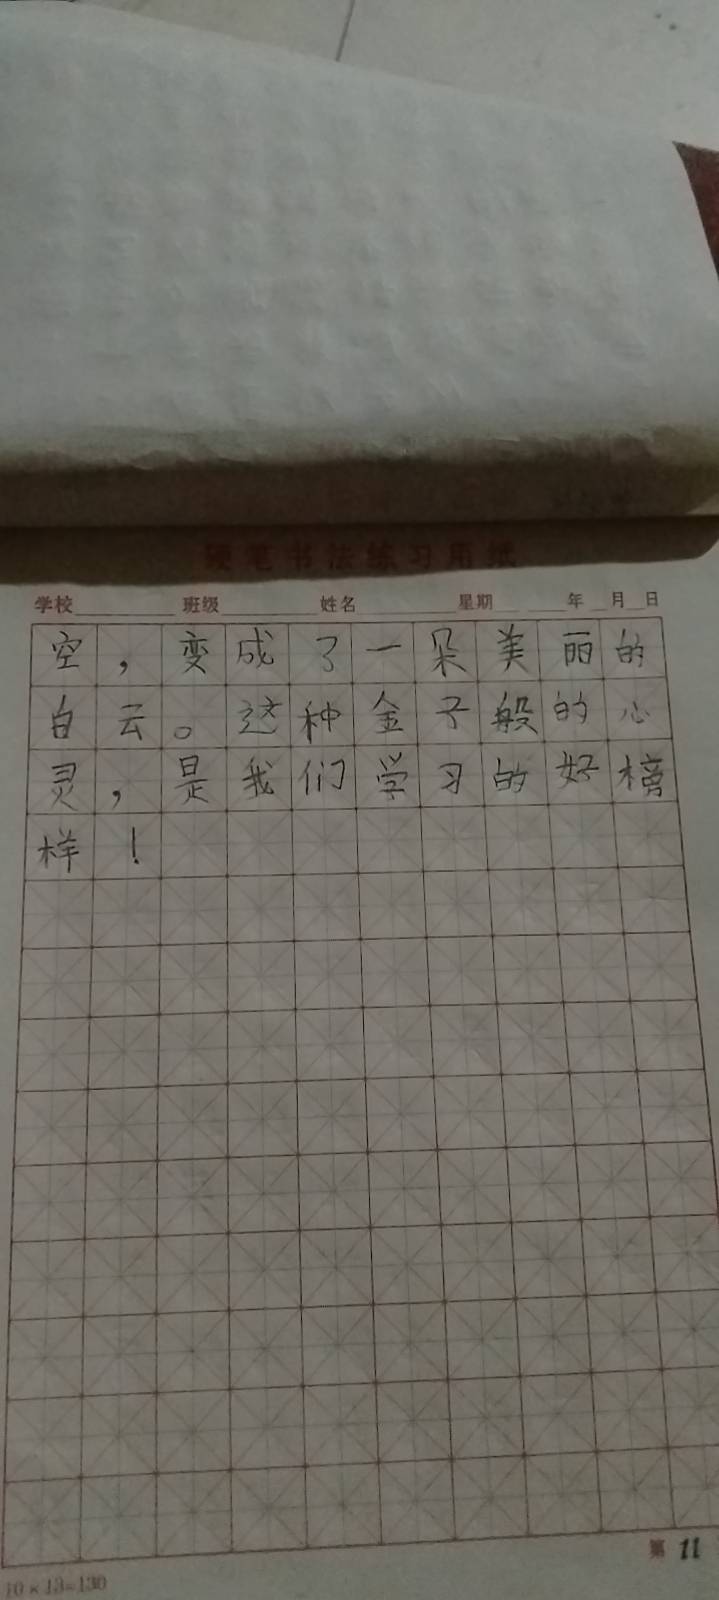 硬笔书法练习用纸
学校 班级 姓名 星期 年 月 日
空，变成了一朵美丽的
白云。这种金子般的心
灵，是我们学习的好榜
样！
第 11
10×13=130